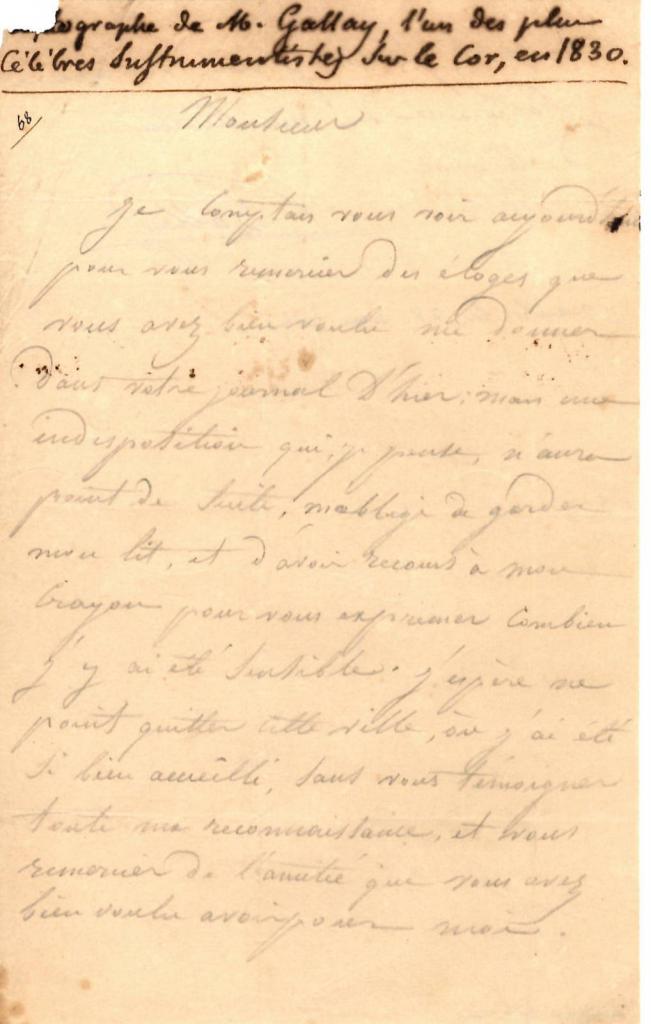 Autographe de M. Gallay, l'un des plus
Célèbres Instrumentistes sur le Cor, en 1830.
68
Monsieur
Je comptais vous voir aujourd'hui
pour vous remercier des éloges que
vous avez bien voulu me donner
dans votre journal d'hier; mais une
indisposition qui, je pense, n'aura
point de suite, m'oblige de garder
mon lit, et d'avoir recours à mon
crayon pour vous exprimer combien
j'y ai été sensible. j'espère ne
point quitter cette ville, où j'ai été
si bien accueilli, sans vous témoigner
toute ma reconnaissance, et vous
remercier de l'amitié que vous avez
bien voulu avoir pour moi.